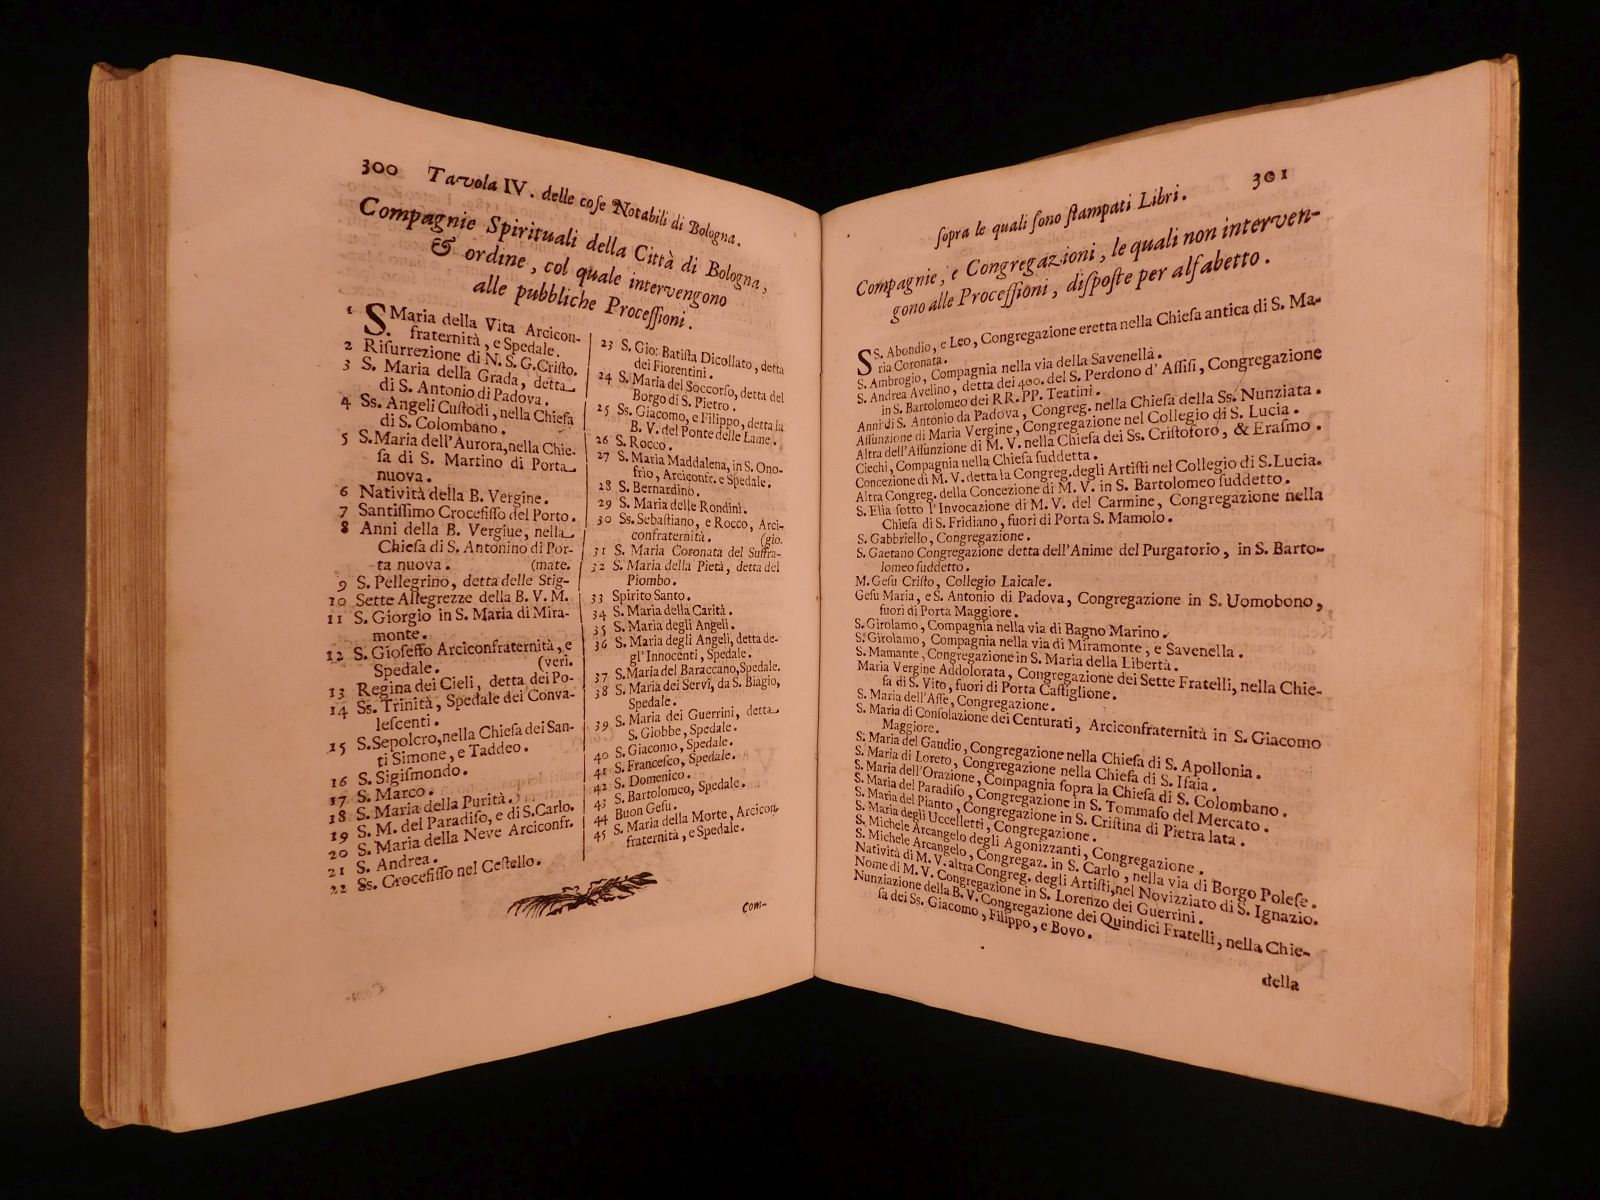 300 Tavola IV. delle coſe Notabili di Bologna.
Compagnie Spirituali della Città di Bologna,
& ordine, col quale intervengono
alle pubbliche Proceſſioni.
1 S. Maria della Vita Arcicon-
fraternità, e Spedale.
2 Riſurrezione di N. S. G. Criſto.
3 S. Maria della Grada, detta
di S. Antonio di Padova.
4 Ss. Angeli Cuſtodi, nella Chieſa
di S. Colombano.
5 S. Maria dell'Aurora, nella Chie-
ſa di S. Martino di Porta
nuova.
6 Natività della B. Vergine.
7 Santiſſimo Crocefiſſo del Porto.
8 Anni della B. Vergiue, nella
Chieſa di S. Antonino di Por-
ta nuova. (mate.
9 S. Pellegrino, detta delle Stig-
10 Sette Allegrezze della B. V. M.
11 S. Giorgio in S. Maria di Mira-
monte.
12 S. Gioſeffo Arciconfraternità, e
Spedale. (veri.
13 Regina dei Cieli, detta dei Po-
14 Ss. Trinità, Spedale dei Conva-
leſcenti.
15 S. Sepolcro, nella Chieſa dei San-
ti Simone, e Taddeo.
16 S. Sigiſmondo.
17 S. Marco.
18 S. Maria della Purità.
19 S. M. del Paradiſo, e di S. Carlo.
20 S. Maria della Neve Arciconfr.
21 S. Andrea.
22 Ss. Crocefiſſo nel Ceſtello.
23 S. Gio: Batiſta Dicollato, detta
dei Fiorentini.
24 S. Maria del Soccorſo, detta del
Borgo di S. Pietro.
25 Ss. Giacomo, e Filippo, detta la
B. V. del Ponte delle Lame.
26 S. Rocco.
27 S. Maria Maddalena, in S. Ono-
frio, Arciconfr. e Spedale.
28 S. Bernardino.
29 S. Maria delle Rondini.
30 Ss. Sebaſtiano, e Rocco, Arci-
confraternità. (gio.
31 S. Maria Coronata del Suffra-
32 S. Maria della Pietà, detta del
Piombo.
33 Spirito Santo.
34 S. Maria della Carità.
35 S. Maria degli Angeli.
36 S. Maria degli Angeli, detta de-
gl'Innocenti, Spedale.
37 S. Maria del Baraccano, Spedale.
38 S. Maria dei Servi, da S. Biagio,
Spedale.
39 S. Maria dei Guerrini, detta
S. Giobbe, Spedale.
40 S. Giacomo, Spedale.
41 S. Franceſco, Spedale.
42 S. Domenico.
43 S. Bartolomeo, Spedale.
44 Buon Geſu.
45 S. Maria della Morte, Arcicon
fraternità, e Spedale.
Com-
ſopra le quali ſono ſtampati Libri. 301
Compagnie, e Congregazioni, le quali non interven-
gono alle Proceſſioni, diſpoſte per alfabetto.
Ss. Abondio, e Leo, Congregazione eretta nella Chieſa antica di S. Ma-
ria Coronata.
S. Ambrogio, Compagnia nella via della Savenella.
S. Andrea Avelino, detta dei 400. del S. Perdono d' Aſſiſi, Congregazione
in S. Bartolomeo dei RR. PP. Teatini.
Anni di S. Antonio da Padova, Congreg. nella Chieſa della Ss. Nunziata.
Aſſunzione di Maria Vergine, Congregazione nel Collegio di S. Lucia.
Altra dell'Aſſunzione di M. V. nella Chieſa dei Ss. Criſtoforo, & Eraſmo.
Ciechi, Compagnia nella Chieſa ſuddetta.
Concezione di M. V. detta la Congreg. degli Artiſti nel Collegio di S. Lucia.
Altra Congreg. della Concezione di M. V. in S. Bartolomeo ſuddetto.
S. Elia ſotto l'Invocazione di M. V. del Carmine, Congregazione nella
Chieſa di S. Fridiano, fuori di Porta S. Mamolo.
S. Gabbriello, Congregazione.
S. Gaetano Congregazione detta dell'Anime del Purgatorio, in S. Barto-
lomeo ſuddetto.
M. Geſu Criſto, Collegio Laicale.
Geſu Maria, e S. Antonio di Padova, Congregazione in S. Uomobono,
fuori di Porta Maggiore.
S. Girolamo, Compagnia nella via di Bagno Marino.
S. Girolamo, Compagnia nella via di Miramonte, e Savenella.
S. Mamante, Congregazione in S. Maria della Libertà.
Maria Vergine Addolorata, Congregazione dei Sette Fratelli, nella Chie-
ſa di S. Vito, fuori di Porta Caſtiglione.
S. Maria dell'Aſſe, Congregazione.
S. Maria di Conſolazione dei Centurati, Arciconfraternità in S. Giacomo
Maggiore.
S. Maria del Gaudio, Congregazione nella Chieſa di S. Apollonia.
S. Maria di Loreto, Congregazione nella Chieſa di S. Iſaia.
S. Maria dell'Orazione, Compagnia ſopra la Chieſa di S. Colombano.
S. Maria del Paradiſo, Congregazione in S. Tommaſo del Mercato.
S. Maria del Pianto, Congregazione in S. Criſtina di Pietra lata.
S. Maria degli Uccelletti, Congregazione.
S. Michele Arcangelo degli Agonizzanti, Congregazione.
S. Michele Arcangelo, Congregaz. in S. Carlo, nella via di Borgo Poleſe.
Natività di M. V. altra Congreg. degli Artiſti, nel Novizziato di S. Ignazio.
Nome di M. V. Congregazione in S. Lorenzo dei Guerrini.
Nunziazione della B. V. Congregazione dei Quindici Fratelli, nella Chie-
ſa dei Ss. Giacomo, Filippo, e Bovo.
della